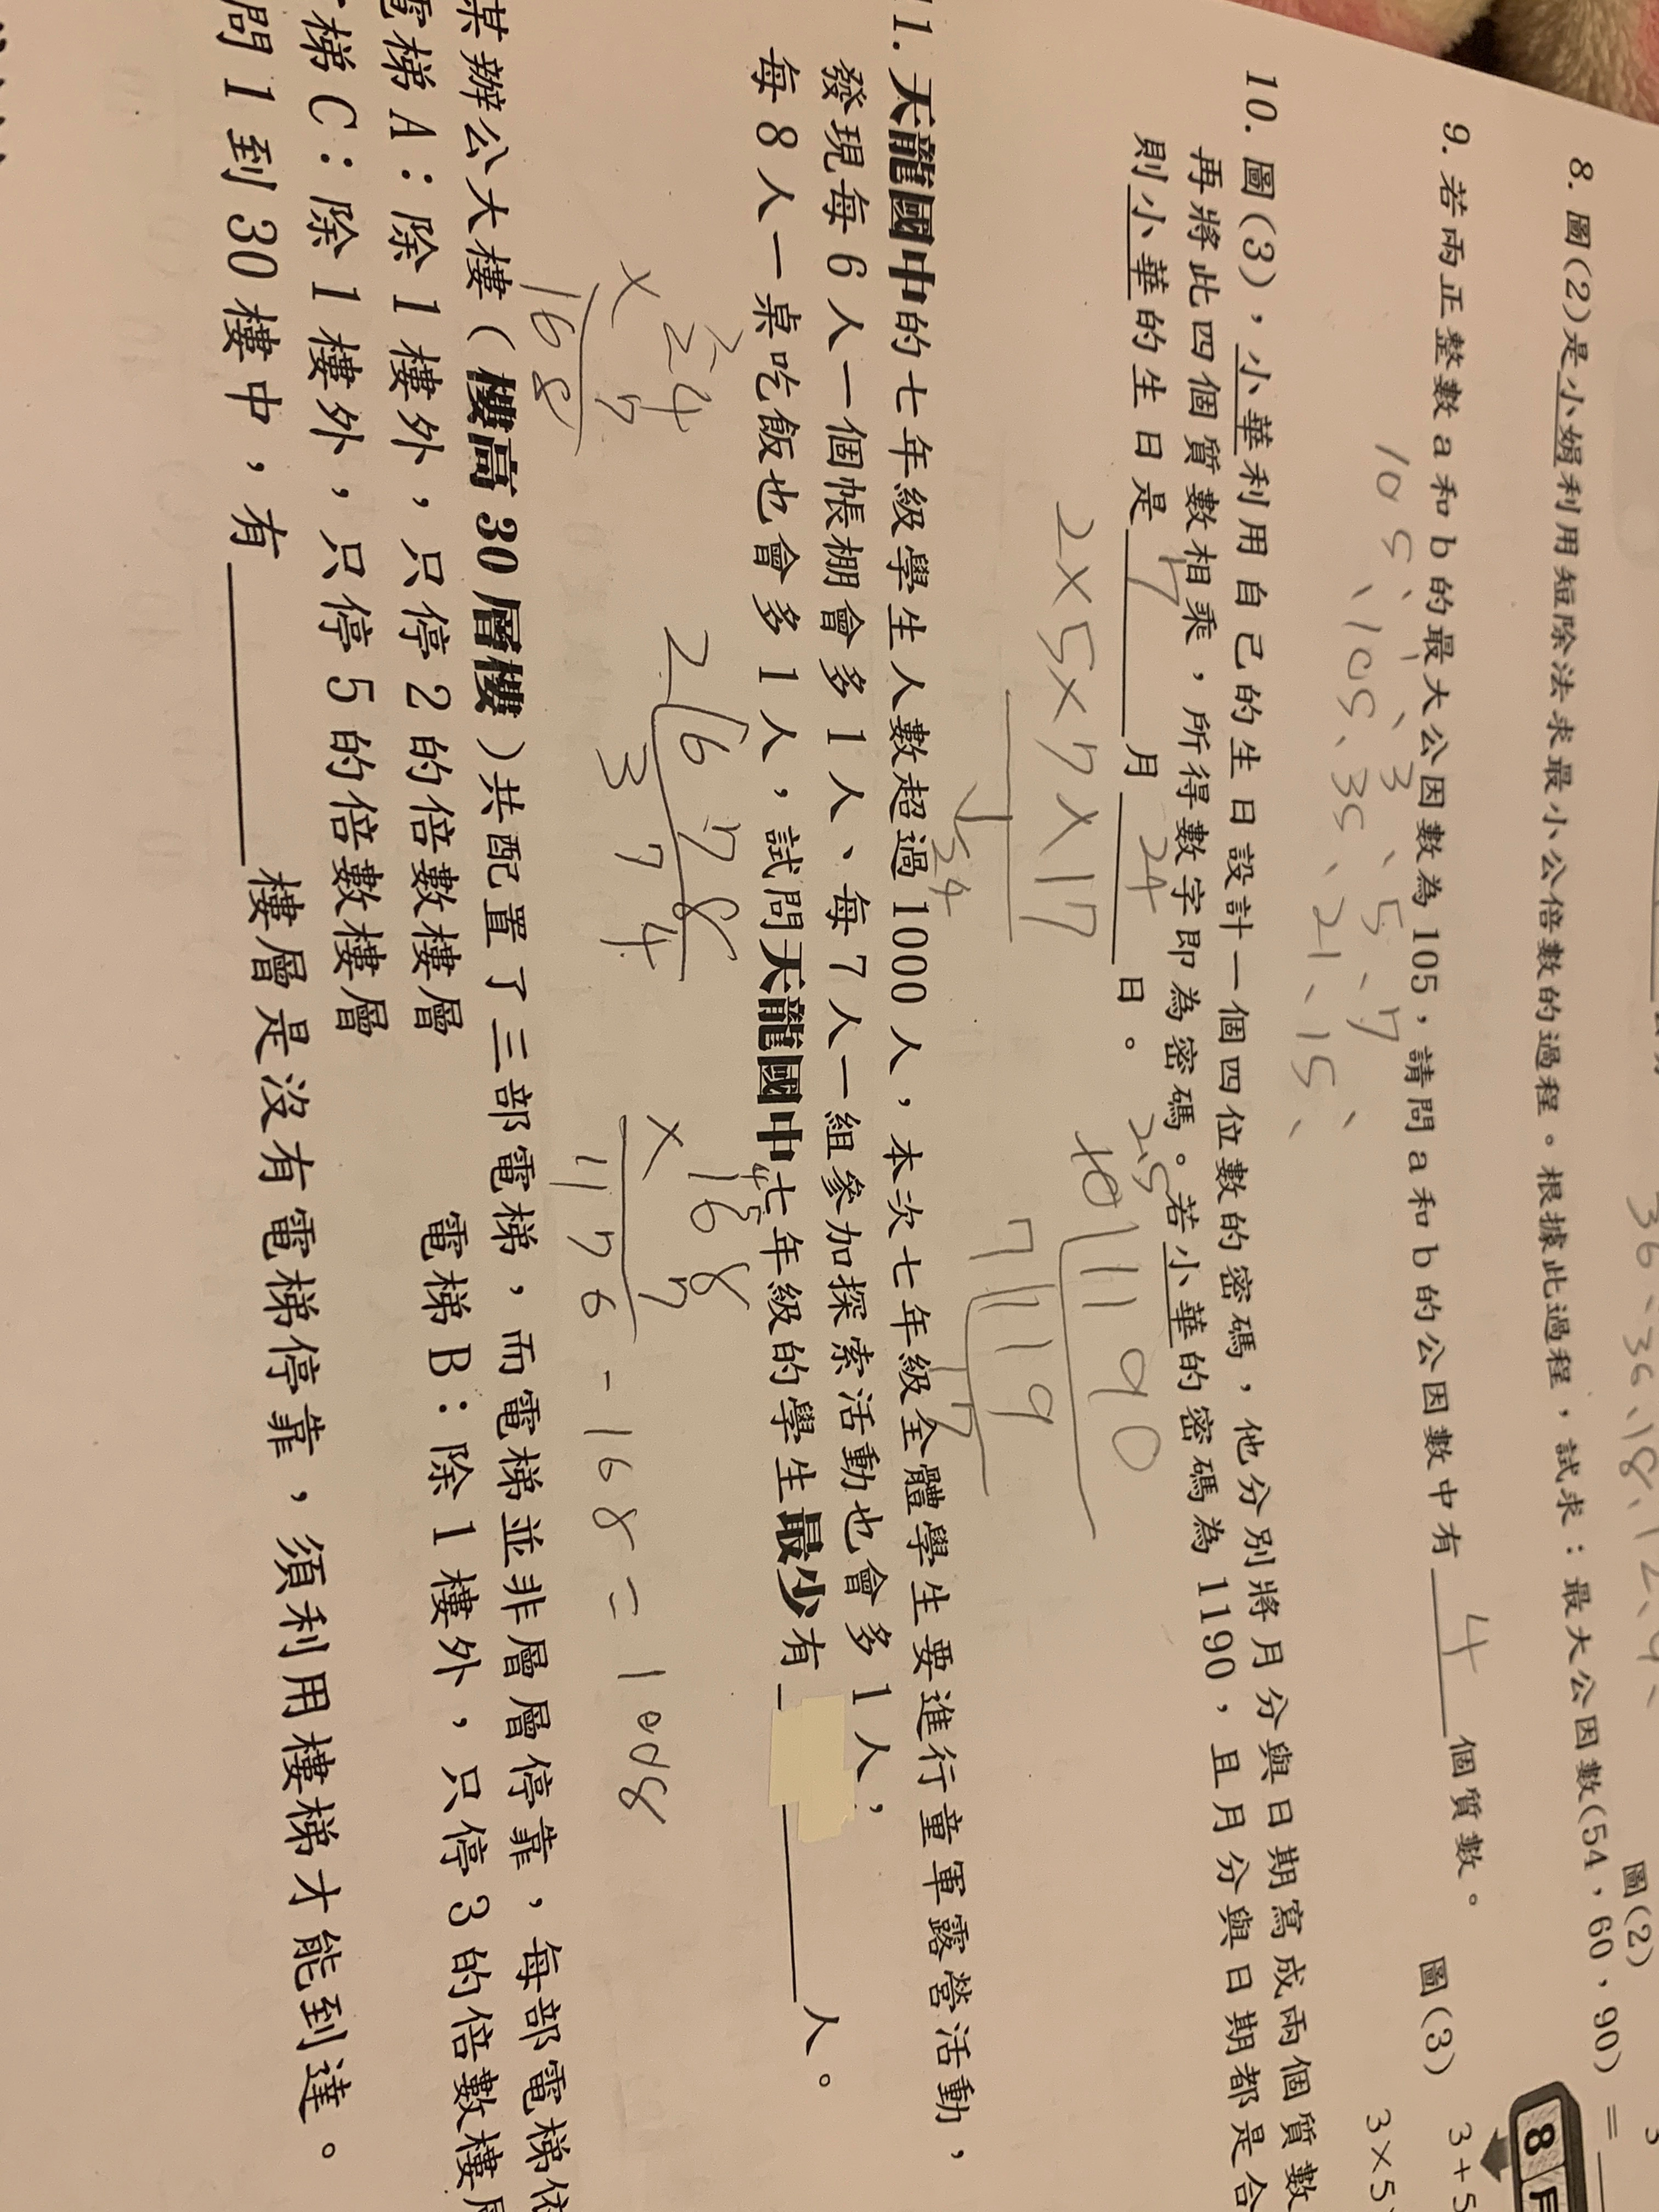 36、36、18、12、9、
圖(2)
8. 圖(2)是小娟利用短除法求最小公倍數的過程。根據此過程，試求：最大公因數(54，60，90)＝
9. 若兩正整數a和b的最大公因數為105，請問a和b的公因數中有 4 個質數。
1、3、5、7
105、105、35、21、15、
圖(3)
8月
3+5
3×5
10. 圖(3)，小華利用自己的生日設計一個四位數的密碼，他分別將月分與日期寫成兩個質數
再將此四個質數相乘，所得數字即為密碼。若小華的密碼為1190，且月分與日期都是合
則小華的生日是 17 月 24 日。
2×5×7×17
24
2.5
10 1190
7 119
17
11. 天龍國中的七年級學生人數超過1000人，本次七年級全體學生要進行童軍露營活動，
發現每6人一個帳棚會多1人、每7人一組參加探索活動也會多1人，
每8人一桌吃飯也會多1人，試問天龍國中七年級的學生最少有 人。
24
× 7
168
2 6 7 8
3 7 4
45
168
× 7
1176 - 168 = 1008
某辦公大樓（樓高30層樓）共配置了三部電梯，而電梯並非層層停靠，每部電梯依
電梯A：除1樓外，只停2的倍數樓層 電梯B：除1樓外，只停3的倍數樓層
梯C：除1樓外，只停5的倍數樓層
問1到30樓中，有 樓層是沒有電梯停靠，須利用樓梯才能到達。